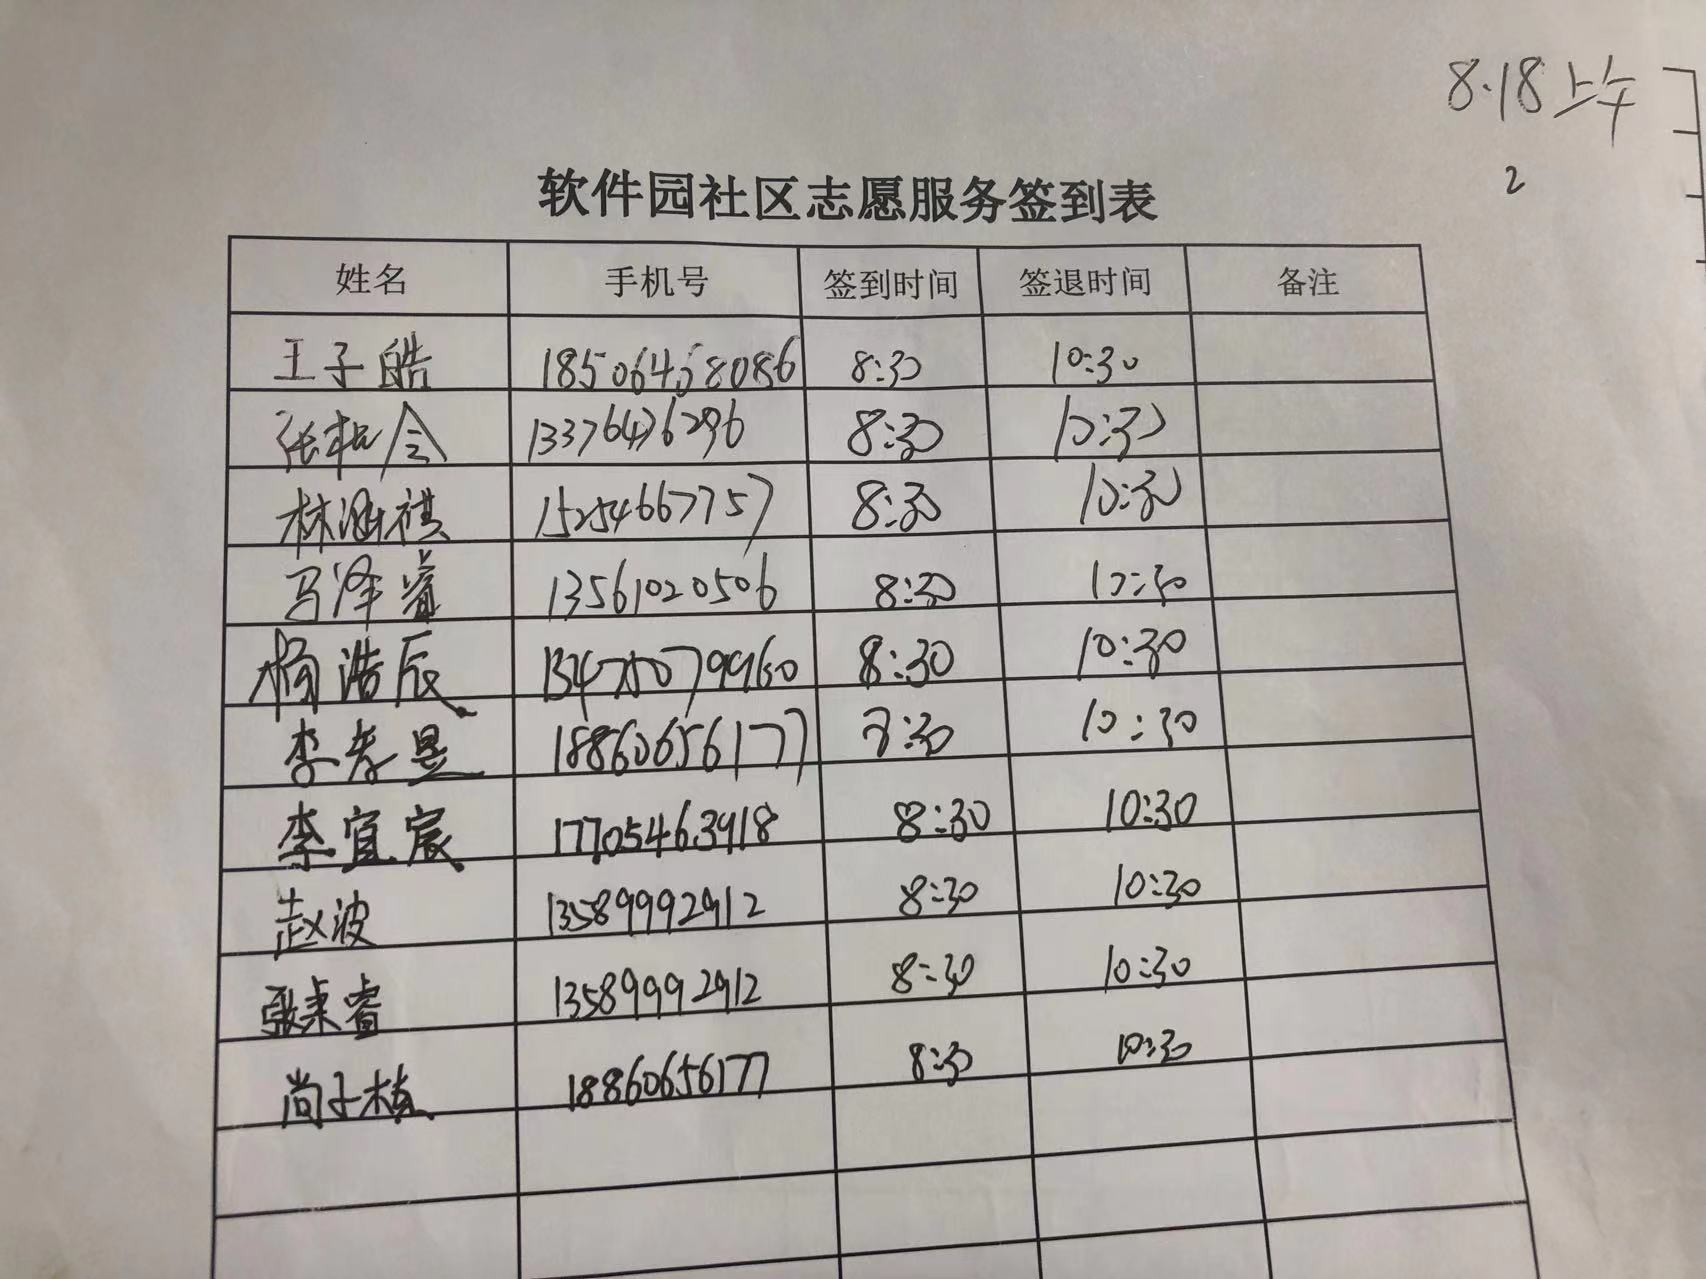 8.18上午
2
软件园社区志愿服务签到表
姓名 手机号 签到时间 签退时间 备注
王子皓 18506468086 8:30 10:30
8:30 10:30
林涵祺 15254667757 8:30 10:30
马泽睿 13561020506 8:30 10:30
杨浩辰 8:30 10:30
李孝昱 18860656177 8:30 10:30
李宜宸 17705463918 8:30 10:30
赵波 13589992912 8:30 10:30
张桌睿 13589992912 8:30 10:30
尚子栋 18860656177 8:30 10:30